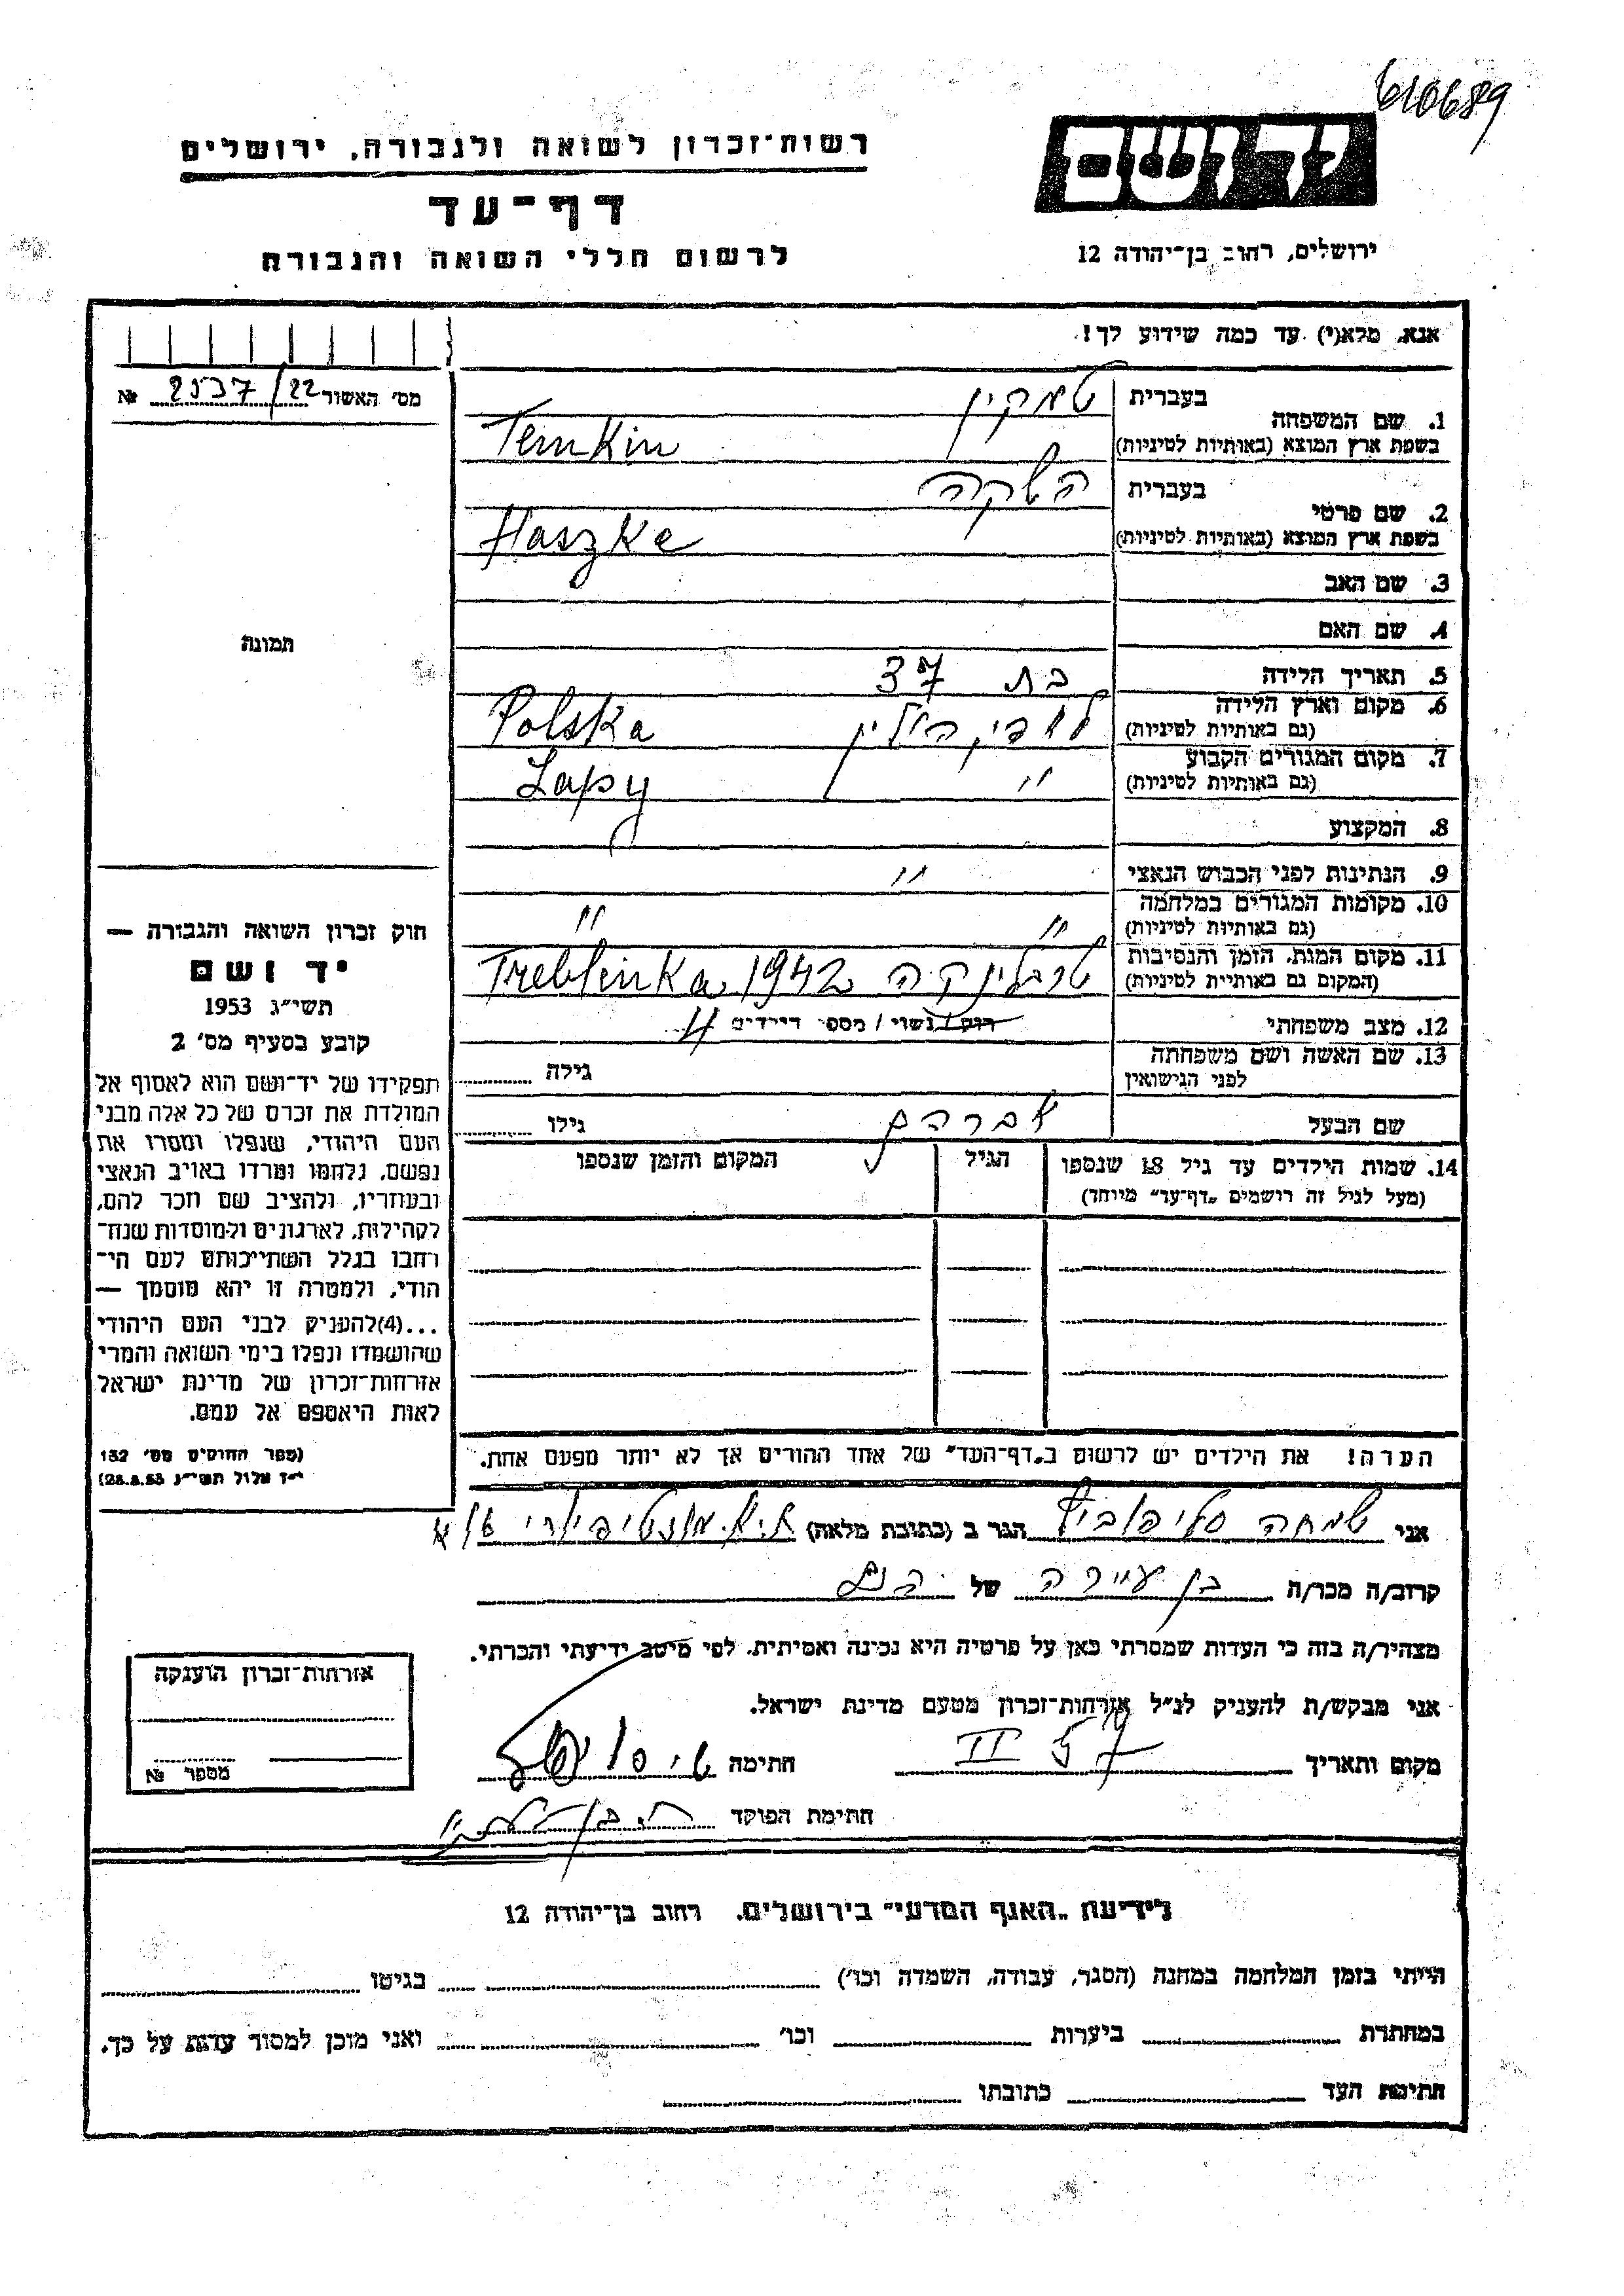 610689
יד ושם
רשות־זכרון לשואה ולגבורה, ירושלים
דף־עד
לרשום חללי השואה והגבורה
ירושלים, רחוב בן־יהודה 12
אנא, מלא(י) עד כמה שידוע לך!
מס׳ האשור 2537/22 №
1. שם המשפחה
בעברית טמקין
בשפת ארץ המוצא (באותיות לטיניות) Temkin
2. שם פרטי
בעברית השקה
בשפת ארץ המוצא (באותיות לטיניות) Haszke
3. שם האב
4. שם האם
תמונה
5. תאריך הלידה בת 37
6. מקום וארץ הלידה
(גם באותיות לטיניות) לופי פולין Polska
7. מקום המגורים הקבוע
(גם באותיות לטיניות) " Lapy
8. המקצוע
9. הנתינות לפני הכבוש הנאצי "
10. מקומות המגורים במלחמה
(גם באותיות לטיניות) " "
11. מקום המות, הזמן והנסיבות
(המקום גם באותיית לטיניות) טרבלינקה 1942 Treblinka
12. מצב משפחתי רוק/נשוי/מספר הילדים 4
13. שם האשה ושם משפחתה
לפני הנישואין גילה
שם הבעל אברהם גילו
14. שמות הילדים עד גיל 18 שנספו
(מעל לגיל זה רושמים „דף־עד״ מיוחד)
הגיל
המקום והזמן שנספו
חוק זכרון השואה והגבורה —
יד ושם
תשי״ג 1953
קובע בסעיף מס׳ 2
תפקידו של יד־ושם הוא לאסוף אל
המולדת את זכרם של כל אלה מבני
העם היהודי, שנפלו ומסרו את
נפשם, נלחמו ומרדו באויב הנאצי
ובעוזריו, ולהציב שם וזכר להם,
לקהילות, לארגונים ולמוסדות שנח־
רחבו בגלל השתייכותם לעם הי־
הודי, ולמטרה זו יהא מוסמך —
...(4)להעניק לבני העם היהודי
שהושמדו ונפלו בימי השואה והמרי
אזרחות־זכרון של מדינת ישראל
לאות היאספם אל עמם.
(ספר החוקים מס׳ 132
י״ז אלול תשי״ג 28.8.53)
הערה! את הילדים יש לרשום ב„דף־העד״ של אחד ההורים אך לא יותר מפעם אחת.
אני שמחה הגר ב (כתובת מלאה)
קרוב/ה מכר/ה בן עיירה של הנם
מצהיר/ה בזה כי העדות שמסרתי כאן על פרטיה היא נכונה ואמיתית, לפי מיטב ידיעתי והכרתי.
אני מבקש/ת להעניק לנ״ל אזרחות־זכרון מטעם מדינת ישראל.
מקום ותאריך 57 II חתימה
חתימת הפוקד
אזרחות־זכרון הוענקה
מספר №
לידיעת „האגף המדעי״ בירושלים, רחוב בן־יהודה 12
הייתי בזמן המלחמה במחנה (הסגר, עבודה, השמדה וכו׳) בגיטו
במחתרת ביערות וכו׳ ואני מוכן למסור עדות על כך.
חתימת העד כתובתו